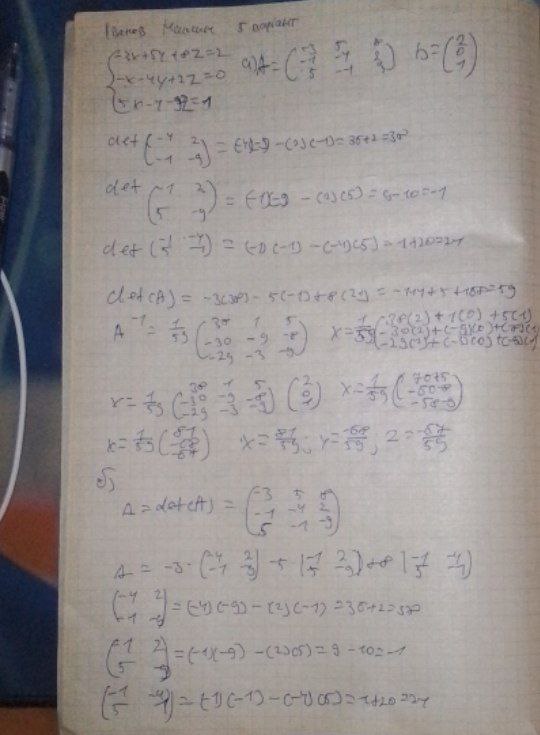 5 вариант
{-3x+5y+8z=2
{-x-4y+2z=0
{5x-y-9z=1
a) A=(-3 5 8; -1 -4 2; 5 -1 9) b=(2; 0; 1)
det(-4 2; -1 -9) = (-4)(-9) - (2)(-1)=36+2=38
det(-1 2; 5 -9) = (-1)(-9) - (2)(5)=9-10=-1
det(-1 -4; 5 -1) = (-1)(-1) - (-4)(5)=1+20=21
det(A) = -3(38) - 5(-1)+8(21) = -114+5+168=59
A^-1 = 1/59 (38 1 5; -30 -9 -8; -29 -3 -9) x=1/59 (38(2)+1(0)+5(1)
x=1/59 (38 1 5; -30 -9 -8; -29 -3 -9) (2; 0; 1) x=1/59
x=1/59 (81; -68; -67) x=81/59; y=-68/59, z=-67/59
б)
A=det(A) = (-3 5 8; -1 -4 2; 5 -1 -9)
A = -3·(-4 2; -1 -9) -5 |-1 2; 5 -9| +8 |-1 -4; 5 -1|
(-4 2; -1 -9) = (-4)(-9) - (2)(-1)=36+2=38
(-1 2; 5 -9) = (-1)(-9) - (2)(5)= 9-10=-1
(-1 -4; 5 -1) = (-1)(-1) - (-4)(5)=1+20=21